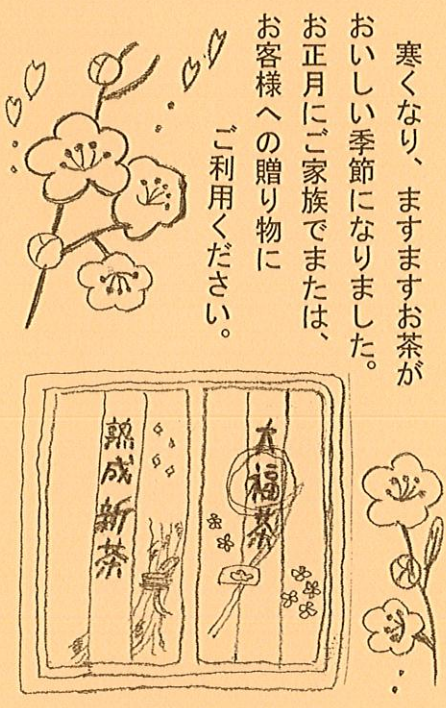 寒くなり、ますますお茶が
おいしい季節になりました。
お正月にご家族でまたは、
お客様への贈り物に
ご利用ください。
大福茶
熟成新茶